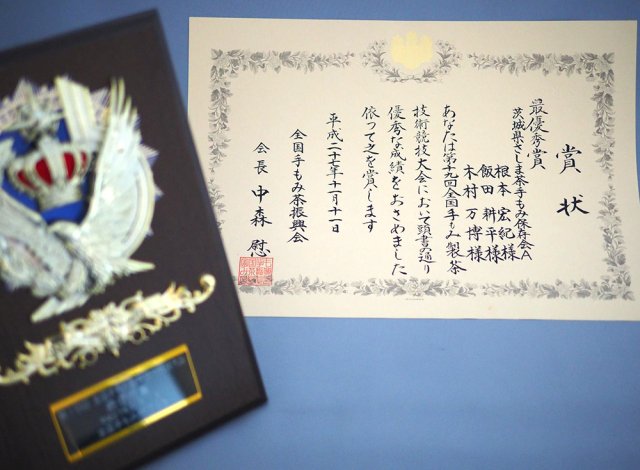 賞状
最優秀賞
茨城県さしま茶手もみ保存会A
根本 宏紀様
飯田 耕平様
木村 万博様
あなたは第十九回全国手もみ製茶
技術競技大会において頭書の通り
優秀な成績をおさめました
依って之を賞します
平成二十七年十一月十一日
全国手もみ茶振興会
会長 中森 慰